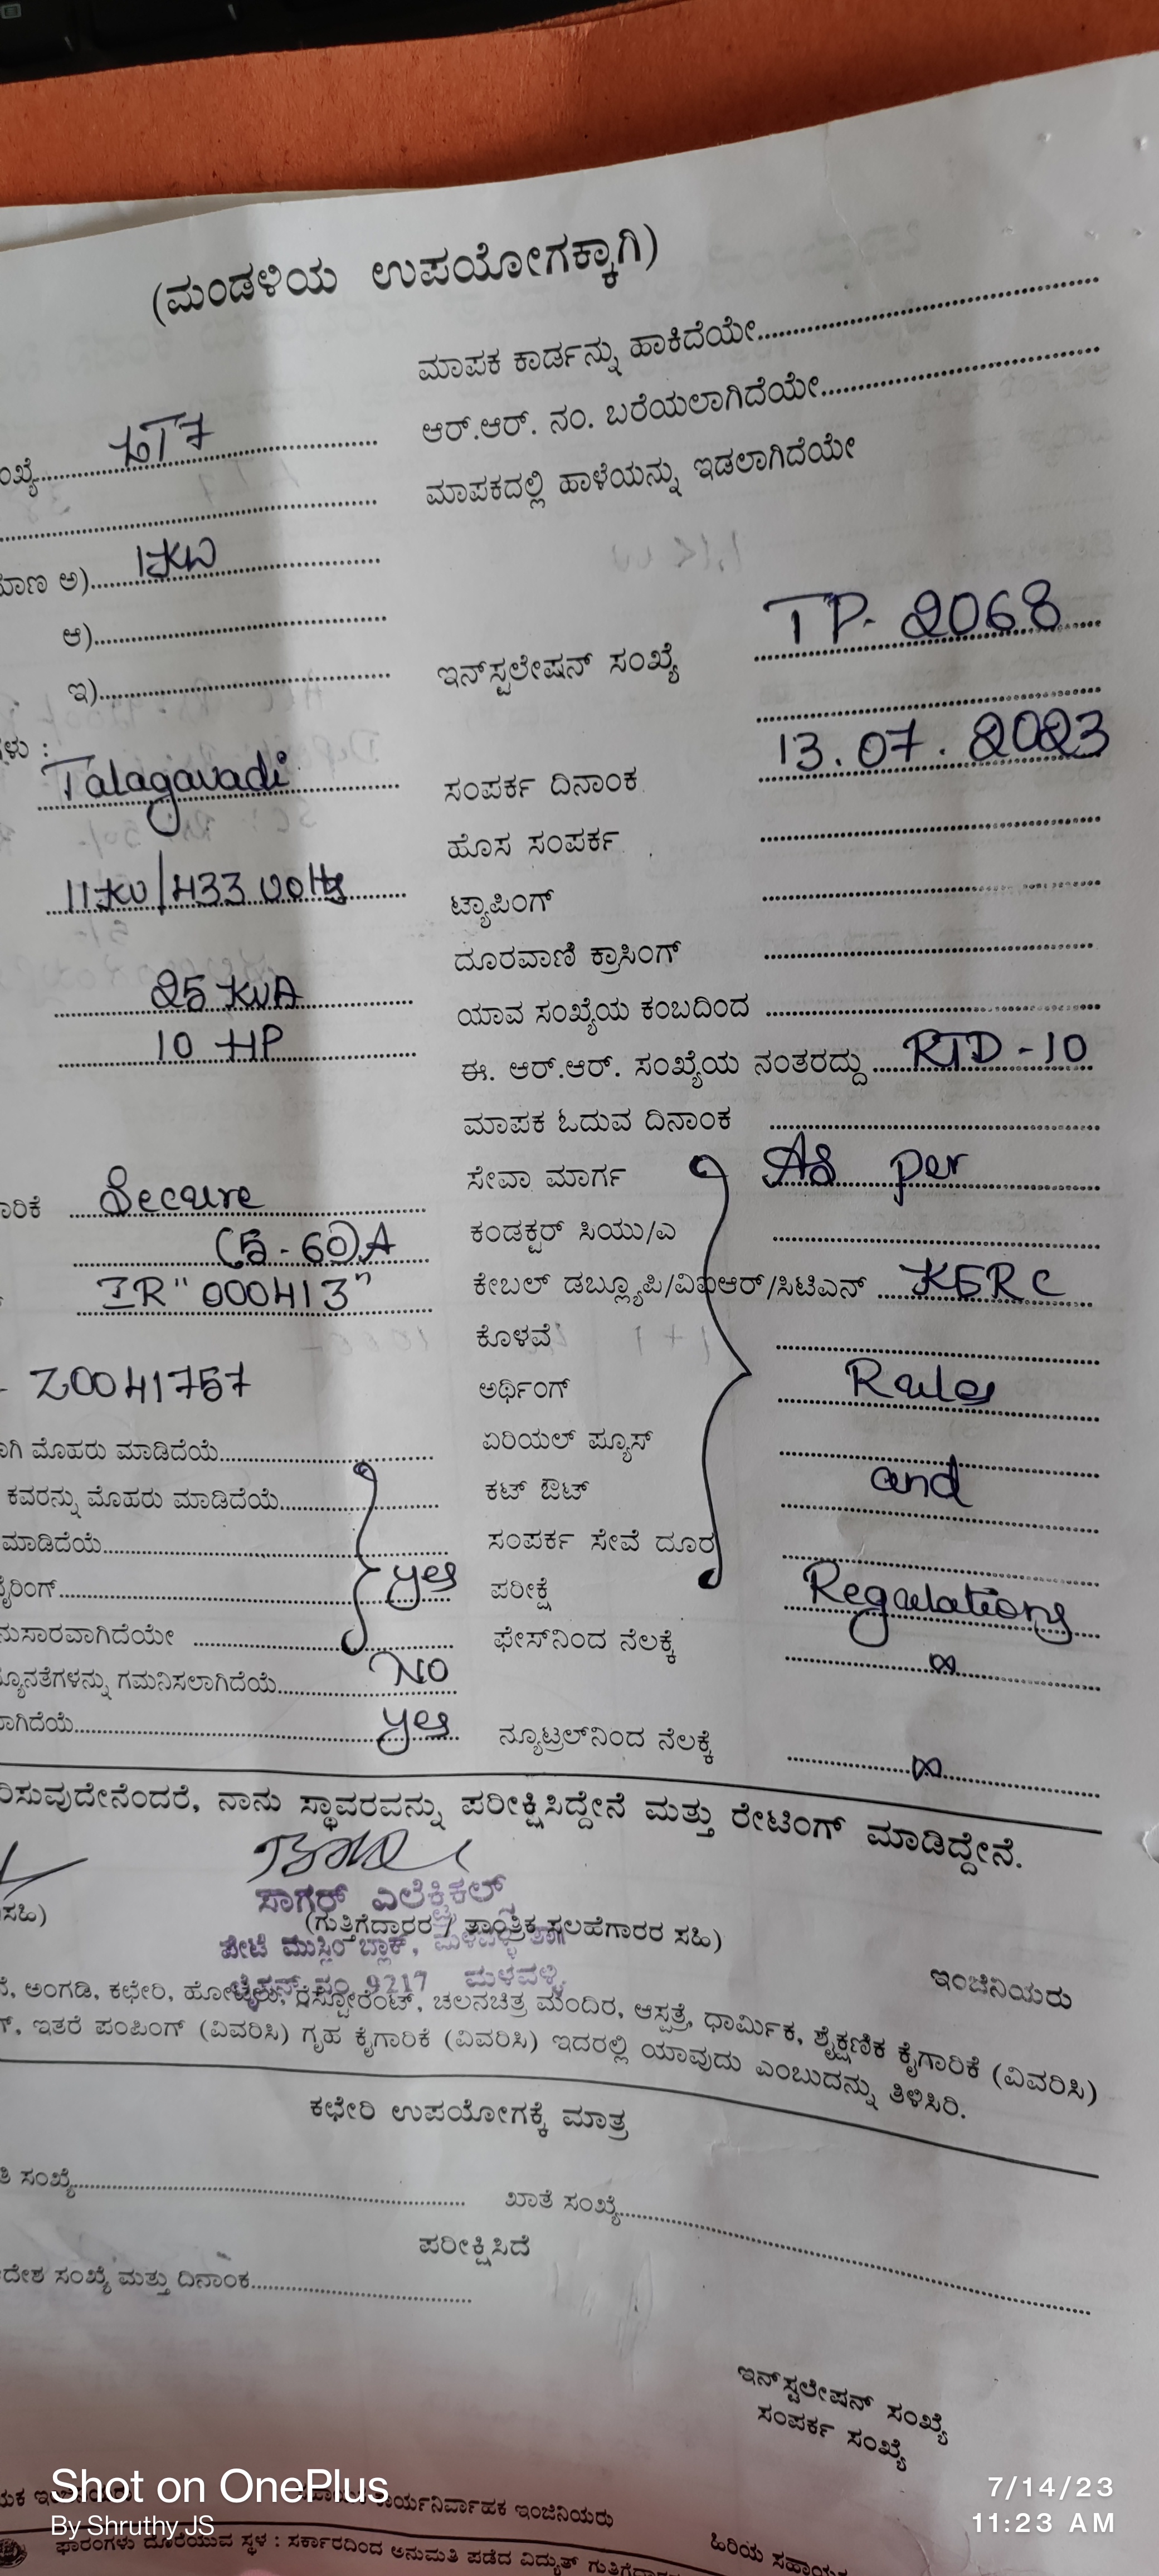 (ಮಂಡಳಿಯ ಉಪಯೋಗಕ್ಕಾಗಿ)
ಮಾಪಕ ಕಾರ್ಡನ್ನು ಹಾಕಿದೆಯೇ
LT7 ಆರ್.ಆರ್. ನಂ. ಬರೆಯಲಾಗಿದೆಯೇ
ಮಾಪಕದಲ್ಲಿ ಹಾಳೆಯನ್ನು ಇಡಲಾಗಿದೆಯೇ
ಅ) 1KW
ಆ)
ಇ) ಇನ್‌ಸ್ಟಲೇಷನ್ ಸಂಖ್ಯೆ TP- 2068
Talagavadi ಸಂಪರ್ಕ ದಿನಾಂಕ 13.07.2023
ಹೊಸ ಸಂಪರ್ಕ
11KV/433 volts ಟ್ಯಾಪಿಂಗ್
ದೂರವಾಣಿ ಕ್ರಾಸಿಂಗ್
25 KVA ಯಾವ ಸಂಖ್ಯೆಯ ಕಂಬದಿಂದ
10 HP ಈ. ಆರ್.ಆರ್. ಸಂಖ್ಯೆಯ ನಂತರದ್ದು RTD-10
ಮಾಪಕ ಓದುವ ದಿನಾಂಕ
Secure ಸೇವಾ ಮಾರ್ಗ As per
(5-60)A ಕಂಡಕ್ಟರ್ ಸಿಯು/ಎ
IR "000413" ಕೇಬಲ್ ಡಬ್ಲ್ಯೂಪಿ/ವಿಐಆರ್/ಸಿಟಿಎನ್ KERC
ಕೊಳವೆ
Z0041757 ಅರ್ಥಿಂಗ್ Rules
ಮೊಹರು ಮಾಡಿದೆಯೆ ಏರಿಯಲ್ ಪ್ಯೂಸ್
ಕವರನ್ನು ಮೊಹರು ಮಾಡಿದೆಯೆ ಕಟ್ ಔಟ್ and
ಮಾಡಿದೆಯೆ ಸಂಪರ್ಕ ಸೇವೆ ದೂರ
yes ಪರೀಕ್ಷೆ Regulations
ಫೇಸ್‌ನಿಂದ ನೆಲಕ್ಕೆ ∞
ಗಮನಿಸಲಾಗಿದೆಯೆ NO
yes ನ್ಯೂಟ್ರಲ್‌ನಿಂದ ನೆಲಕ್ಕೆ ∞
ನಾನು ಸ್ಥಾವರವನ್ನು ಪರೀಕ್ಷಿಸಿದ್ದೇನೆ ಮತ್ತು ರೇಟಿಂಗ್ ಮಾಡಿದ್ದೇನೆ.
ಸಾಗರ್ ಎಲೆಕ್ಟ್ರಿಕಲ್ಸ್
(ಗುತ್ತಿಗೆದಾರರ / ತಾಂತ್ರಿಕ ಸಲಹೆಗಾರರ ಸಹಿ)
ಪೇಟೆ ಮುಸ್ಲಿಂ ಬ್ಲಾಕ್,
9217 ಮಳವಳ್ಳಿ
ಇಂಜಿನಿಯರು
ಅಂಗಡಿ, ಕಛೇರಿ, ಹೋಟೆಲು, ರೆಸ್ಟೋರೆಂಟ್, ಚಲನಚಿತ್ರ ಮಂದಿರ, ಆಸ್ಪತ್ರೆ, ಧಾರ್ಮಿಕ, ಶೈಕ್ಷಣಿಕ ಕೈಗಾರಿಕೆ (ವಿವರಿಸಿ)
ಇತರೆ ಪಂಪಿಂಗ್ (ವಿವರಿಸಿ) ಗೃಹ ಕೈಗಾರಿಕೆ (ವಿವರಿಸಿ) ಇದರಲ್ಲಿ ಯಾವುದು ಎಂಬುದನ್ನು ತಿಳಿಸಿರಿ.
ಕಛೇರಿ ಉಪಯೋಗಕ್ಕೆ ಮಾತ್ರ
ಸಂಖ್ಯೆ ಖಾತೆ ಸಂಖ್ಯೆ
ಪರೀಕ್ಷಿಸಿದೆ
ಸಂಖ್ಯೆ ಮತ್ತು ದಿನಾಂಕ
ಇನ್‌ಸ್ಟಲೇಷನ್ ಸಂಖ್ಯೆ
ಸಂಪರ್ಕ ಸಂಖ್ಯೆ
ಹಿರಿಯ
ಫಾರಂಗಳು ದೊರೆಯುವ ಸ್ಥಳ : ಸರ್ಕಾರದಿಂದ ಅನುಮತಿ ಪಡೆದ ವಿದ್ಯುತ್
Shot on OnePlus
By Shruthy JS
7/14/23
11:23 AM